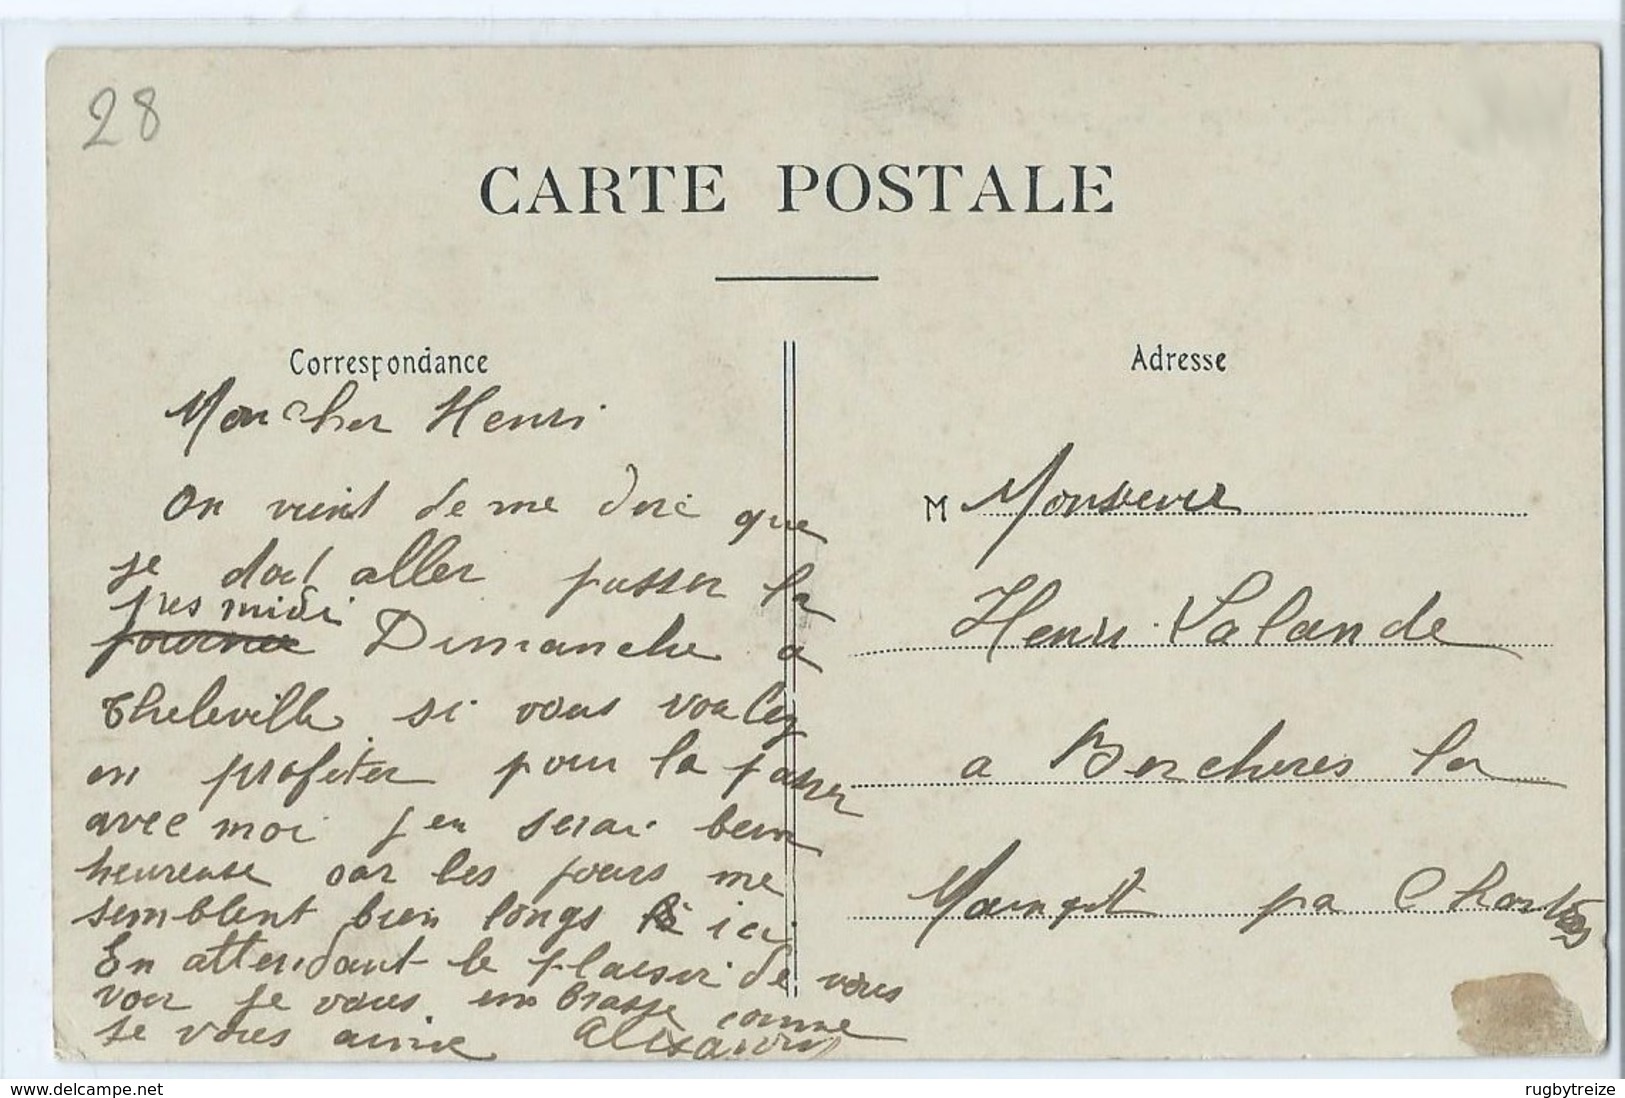 28
CARTE POSTALE
Correspondance
Mon cher Henri
On vient de me dire que
je doit aller passer la
pres midi
journee Dimanche a
Theleville si vous voulez
en profiter pour la passer
avec moi j en serai bien
heureuse car les jours me
semblent bien longs ici
En attendant le plaisir de vous
voir je vous embrasse comme
je vous aime Alexandrine
Adresse
M Monsieur
Henri Lalande
a Bercheres la
Maingot pa Chartres
www.delcampe.net
rugbytreize